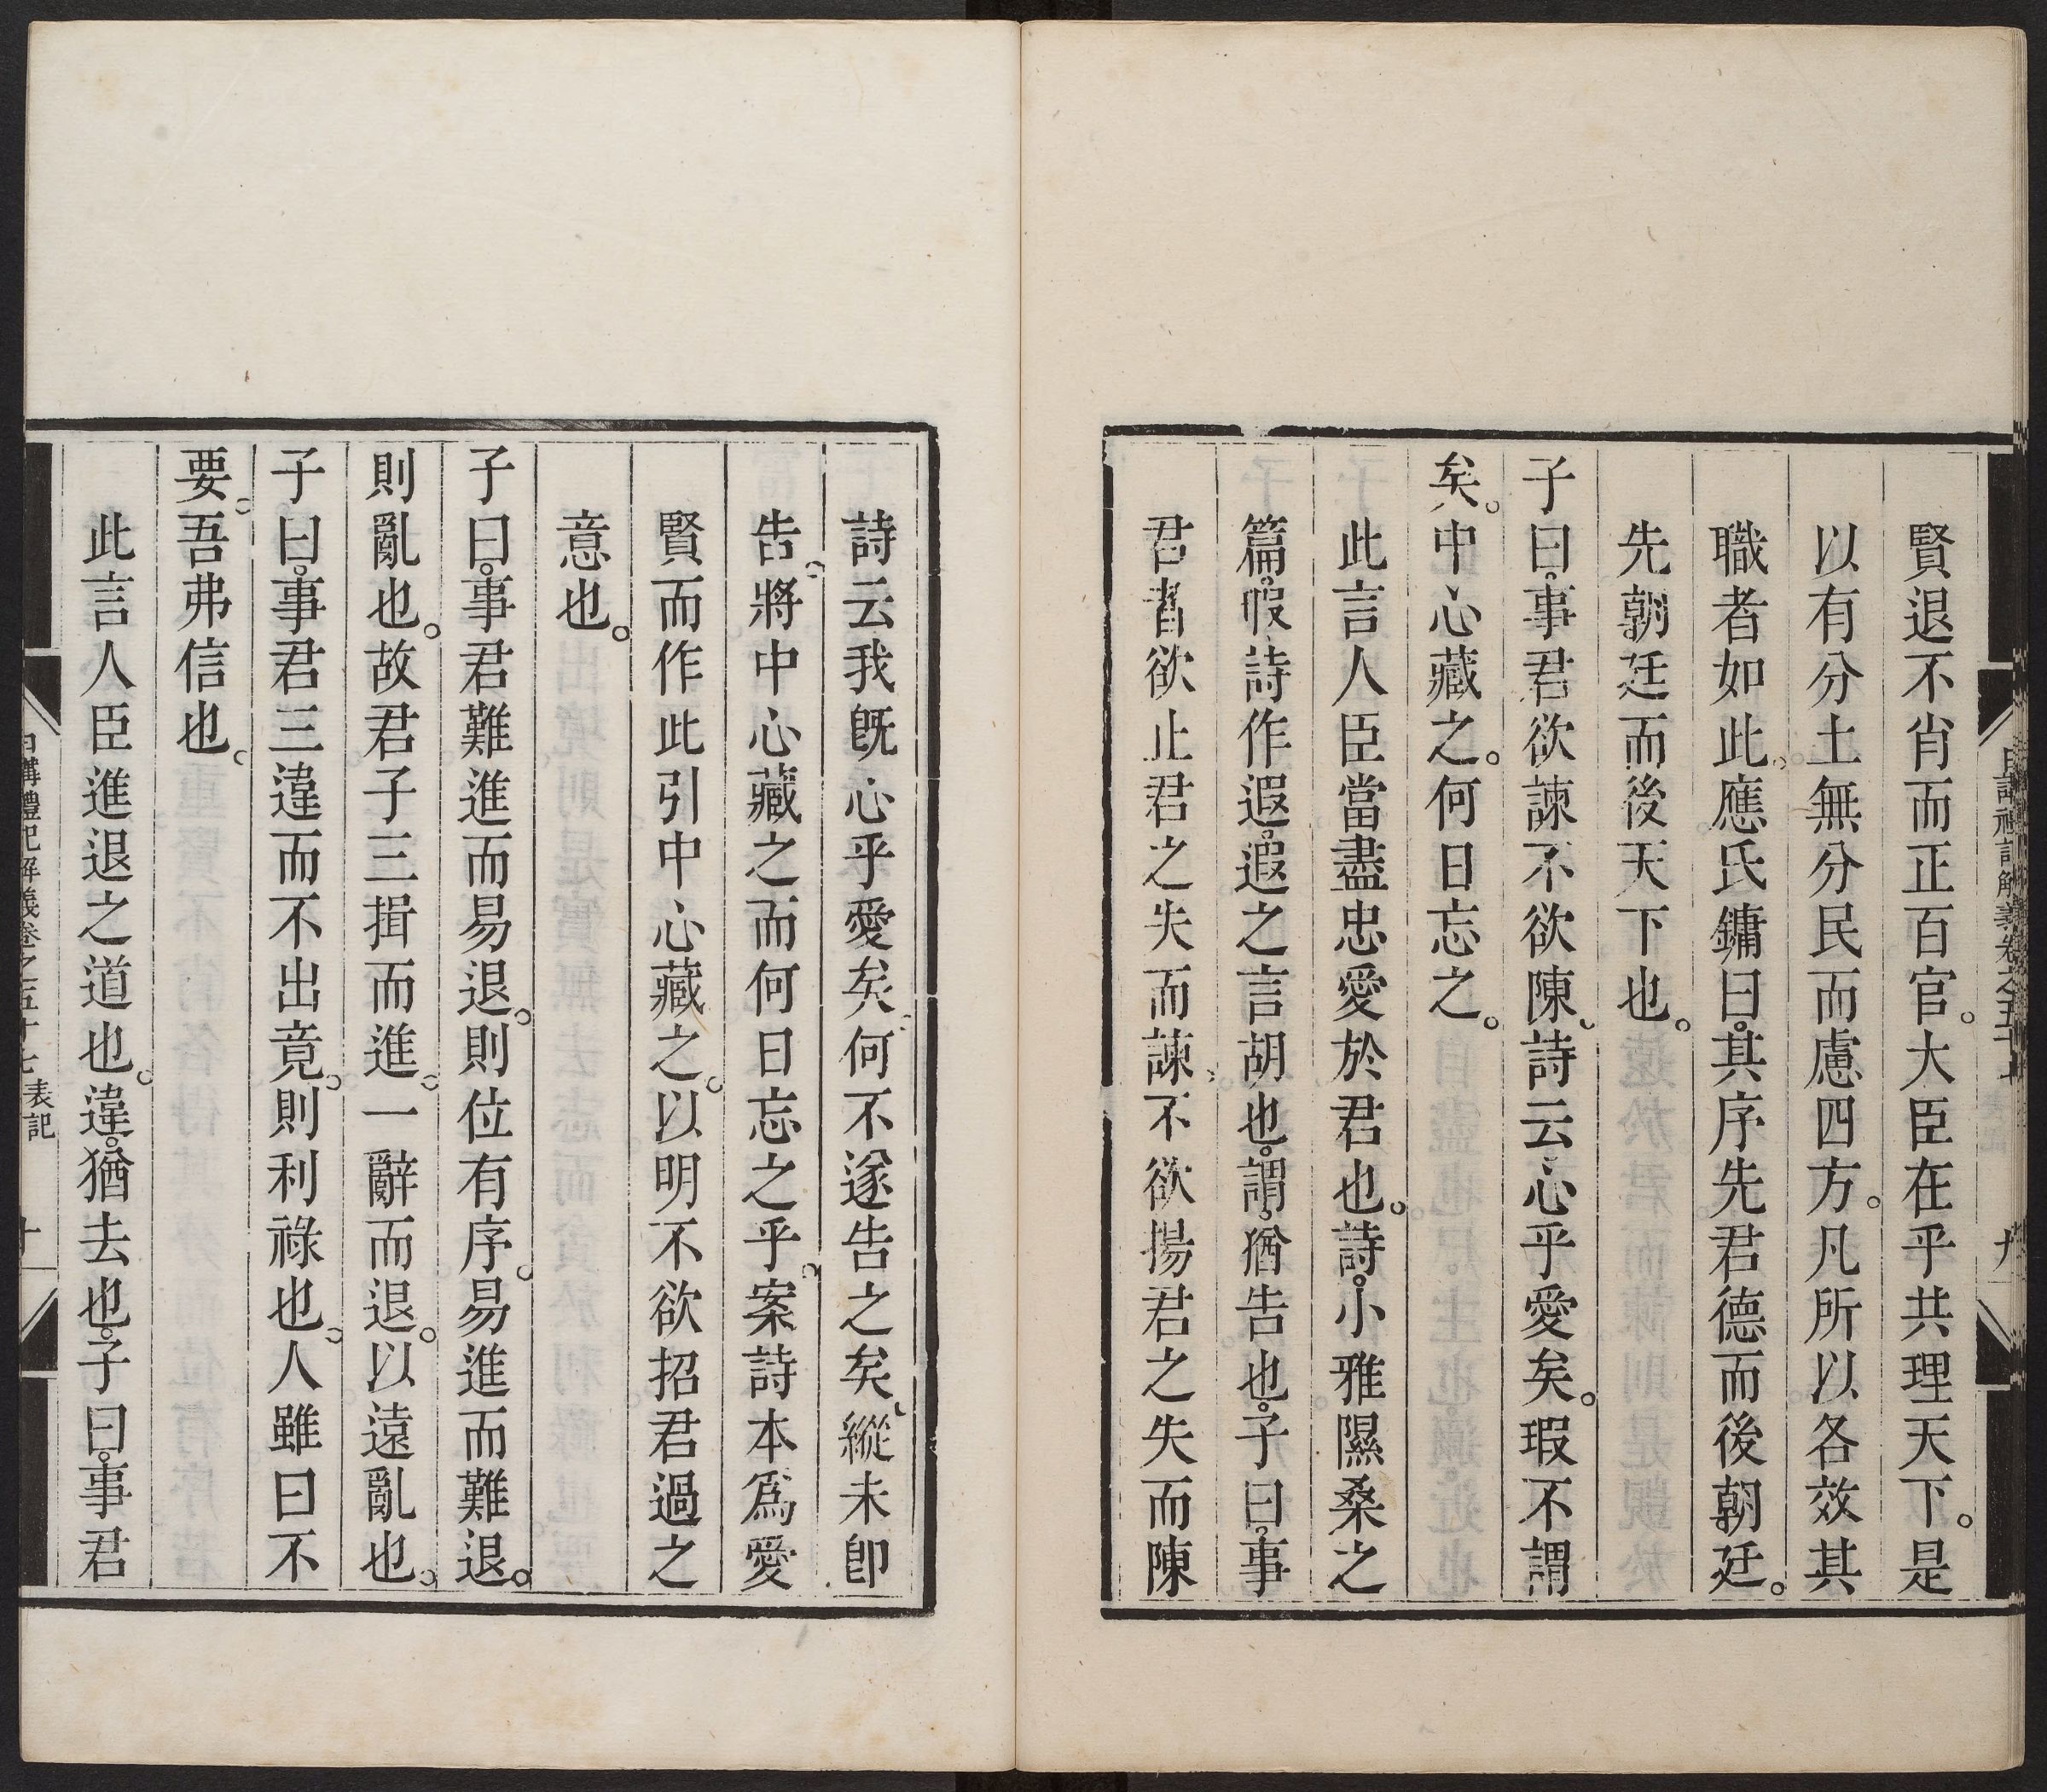 賢退不肖而正百官。大臣在乎共理天下。是
以有分土無分民而慮四方。凡所以各效其
職者如此。應氏鏞曰。其序先君德而後朝廷。
先朝廷而後天下也。
子曰。事君欲諫不欲陳。詩云心乎愛矣。瑕不謂
矣。中心藏之。何日忘之。
此言人臣當盡忠愛於君也。詩。小雅隰桑之
篇。瑕。詩作遐。遐之言胡也。謂。猶告也。子曰。事
君者欲止君之失而諫。不欲揚君之失而陳
日講禮記解義卷之五十七
九
詩云我既心乎愛矣。何不遂告之矣。縱未即
告。將中心藏之而何日忘之乎。案詩本為愛
賢而作此引中心藏之。以明不欲招君過之
意也。
子曰。事君難進而易退。則位有序。易進而難退。
則亂也。故君子三揖而進。一辭而退。以遠亂也。
子曰。事君三違而不出竟。則利祿也。人雖曰不
要。吾弗信也。
此言人臣進退之道也。違。猶去也。子曰。事君
日講禮記解義卷之五十七 表記
十